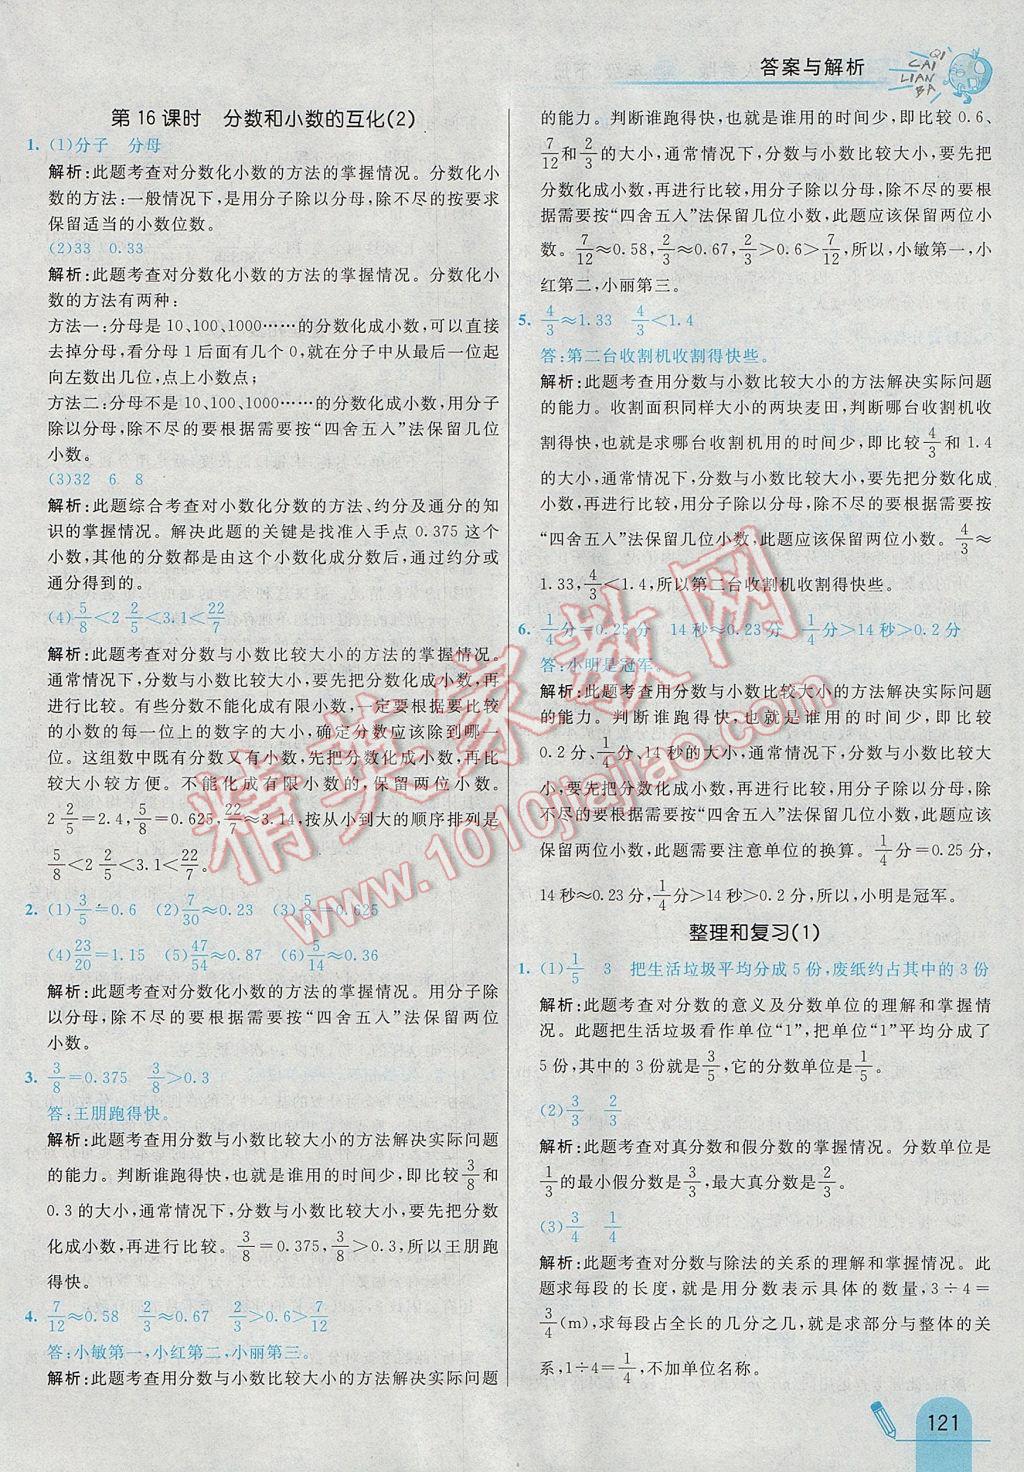 答案与解析
QI
CAI
LIAN
BA
第16课时　分数和小数的互化(2)
1. (1)分子　分母
解析:此题考查对分数化小数的方法的掌握情况。分数化小
数的方法:一般情况下,是用分子除以分母,除不尽的按要求
保留适当的小数位数。
(2)33　0.33
解析:此题考查对分数化小数的方法的掌握情况。分数化小
数的方法有两种:
方法一:分母是10、100、1000……的分数化成小数,可以直接
去掉分母,看分母1后面有几个0,就在分子中从最后一位起
向左数出几位,点上小数点;
方法二:分母不是10、100、1000……的分数化成小数,用分子
除以分母,除不尽的要根据需要按“四舍五入”法保留几位
小数。
(3)32　6　8
解析:此题综合考查对小数化分数的方法、约分及通分的知
识的掌握情况。解决此题的关键是找准入手点0.375这个
小数,其他的分数都是由这个小数化成分数后,通过约分或
通分得到的。
(4)5/8<2 2/5<3.1<22/7
解析:此题考查对分数与小数比较大小的方法的掌握情况。
通常情况下,分数与小数比较大小,要先把分数化成小数,再
进行比较。有些分数不能化成有限小数,一定要根据要比较
的小数的每一位上的数字的大小,确定分数应该除到哪一
位。这组数中既有分数又有小数,先把分数化成小数,再比
较大小较方便。不能化成有限小数的,保留两位小数。
2 2/5=2.4,5/8=0.625,22/7≈3.14,按从小到大的顺序排列是
5/8<2 2/5<3.1<22/7。
2. (1)3/5=0.6　(2)7/30≈0.23　(3)5/8=0.625
(4)23/20=1.15　(5)47/54≈0.87　(6)5/14≈0.36
解析:此题考查对分数化小数的方法的掌握情况。用分子除
以分母,除不尽的要根据需要按“四舍五入”法保留两位
小数。
3. 3/8=0.375　3/8>0.3
答:王朋跑得快。
解析:此题考查用分数与小数比较大小的方法解决实际问题
的能力。判断谁跑得快,也就是谁用的时间少,即比较3/8和
0.3的大小,通常情况下,分数与小数比较大小,要先把分数
化成小数,再进行比较。3/8=0.375,3/8>0.3,所以王朋跑
得快。
4. 7/12≈0.58　2/3≈0.67　2/3>0.6>7/12
答:小敏第一,小红第二,小丽第三。
解析:此题考查用分数与小数比较大小的方法解决实际问题
的能力。判断谁跑得快,也就是谁用的时间少,即比较0.6、
7/12和2/3的大小,通常情况下,分数与小数比较大小,要先把
分数化成小数,再进行比较,用分子除以分母,除不尽的要根
据需要按“四舍五入”法保留几位小数,此题应该保留两位小
数。7/12≈0.58,2/3≈0.67,2/3>0.6>7/12,所以,小敏第一,小
红第二,小丽第三。
5. 4/3≈1.33　4/3<1.4
答:第二台收割机收割得快些。
解析:此题考查用分数与小数比较大小的方法解决实际问题
的能力。收割面积同样大小的两块麦田,判断哪台收割机收
割得快些,也就是求哪台收割机用的时间少,即比较4/3和1.4
的大小,通常情况下,分数与小数比较大小,要先把分数化成
小数,再进行比较,用分子除以分母,除不尽的要根据需要按
“四舍五入”法保留几位小数,此题应该保留两位小数。4/3≈
1.33,4/3<1.4,所以第二台收割机收割得快些。
6. 1/4分=0.25分　14秒≈0.23分　1/4分>14秒>0.2分
答:小明是冠军。
解析:此题考查用分数与小数比较大小的方法解决实际问题
的能力。判断谁跑得快,也就是谁用的时间少,即比较
0.2分、1/4分、14秒的大小,通常情况下,分数与小数比较大
小,要先把分数化成小数,再进行比较,用分子除以分母,除
不尽的要根据需要按“四舍五入”法保留几位小数,此题应该
保留两位小数,此题需要注意单位的换算。1/4分=0.25分,
14秒≈0.23分,1/4分>14秒>0.2分,所以,小明是冠军。
整理和复习(1)
1. (1)1/5　3　把生活垃圾平均分成5份,废纸约占其中的3份
解析:此题考查对分数的意义及分数单位的理解和掌握情
况。此题把生活垃圾看作单位“1”,把单位“1”平均分成了
5份,其中的3份就是3/5,它的分数单位是1/5。
(2)3/3　2/3
解析:此题考查对真分数和假分数的掌握情况。分数单位是
1/3的最小假分数是3/3,最大真分数是2/3。
(3)3/4　1/4
解析:此题考查对分数与除法的关系的理解和掌握情况。此
题求每段的长度,就是用分数表示具体的数量,3÷4=
3/4(m),求每段占全长的几分之几,就是求部分与整体的关
系,1÷4=1/4,不加单位名称。
精英家教网
www.1010jiajiao.com
121